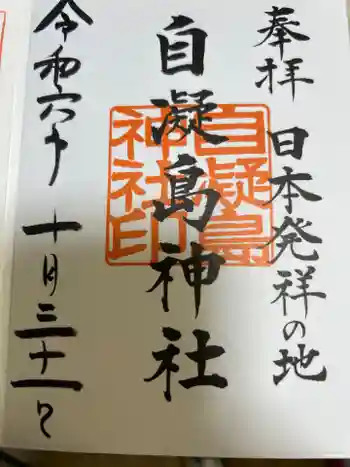 奉拝
日本発祥の地
自凝島神社
自凝島
神社印
令和六年
十月三十一日